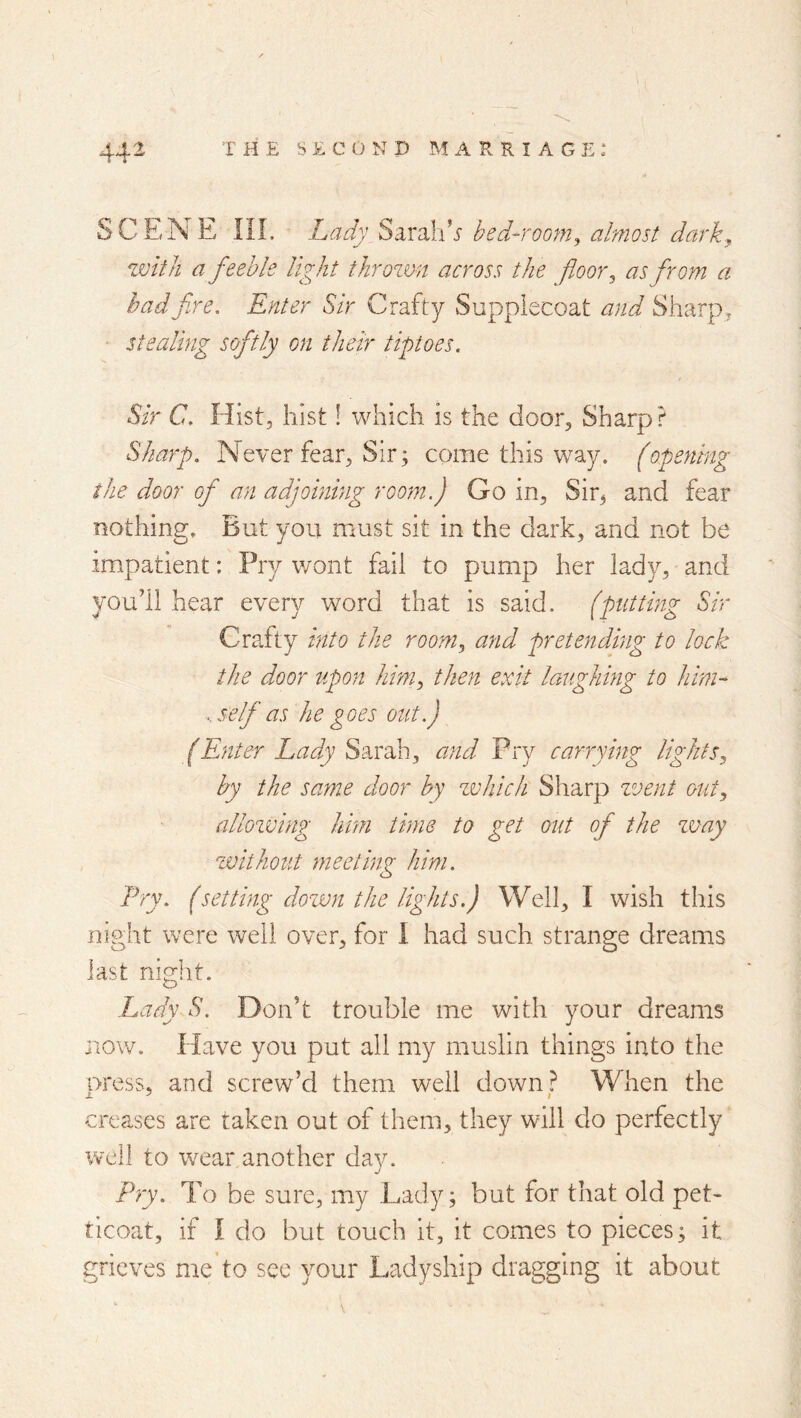 442 THE SECOND MARRIAGE:
SCENE III. Lady Sarah's bed-room, almost dark,
with a feeble light thrown across the floor, as from a
bad fire. Enter Sir Crafty Supplecoat and Sharp,
stealing softly on their tiptoes.
Sir C. Hist, hist! which is the door, Sharp?
Sharp. Never fear, Sir; come this way. (opening
the door of an adjoining room.) Go in, Sir, and fear
nothing. But you must sit in the dark, and not be
impatient: Pry wont fail to pump her lady, and
you'll hear every word that is said. (putting Sir
Crafty into the room, and pretending to lock
the door upon him, then exit laughing to him-
self as he goes out.)
(Enter Lady Sarah, and Pry carrying lights,
by the same door by which Sharp went out,
allowing him time to get out of the way
without meeting him.
Pry. (setting down the lights.) Well, I wish this
night were well over, for I had such strange dreams
last night.
Lady S. Don't trouble me with your dreams
now. Have you put all my muslin things into the
press, and screw'd them well down? When the
creases are taken out of them, they will do perfectly
well to wear another day.
Pry. To be sure, my Lady; but for that old pet-
ticoat, if I do but touch it, it comes to pieces; it
grieves me to see your Ladyship dragging it about